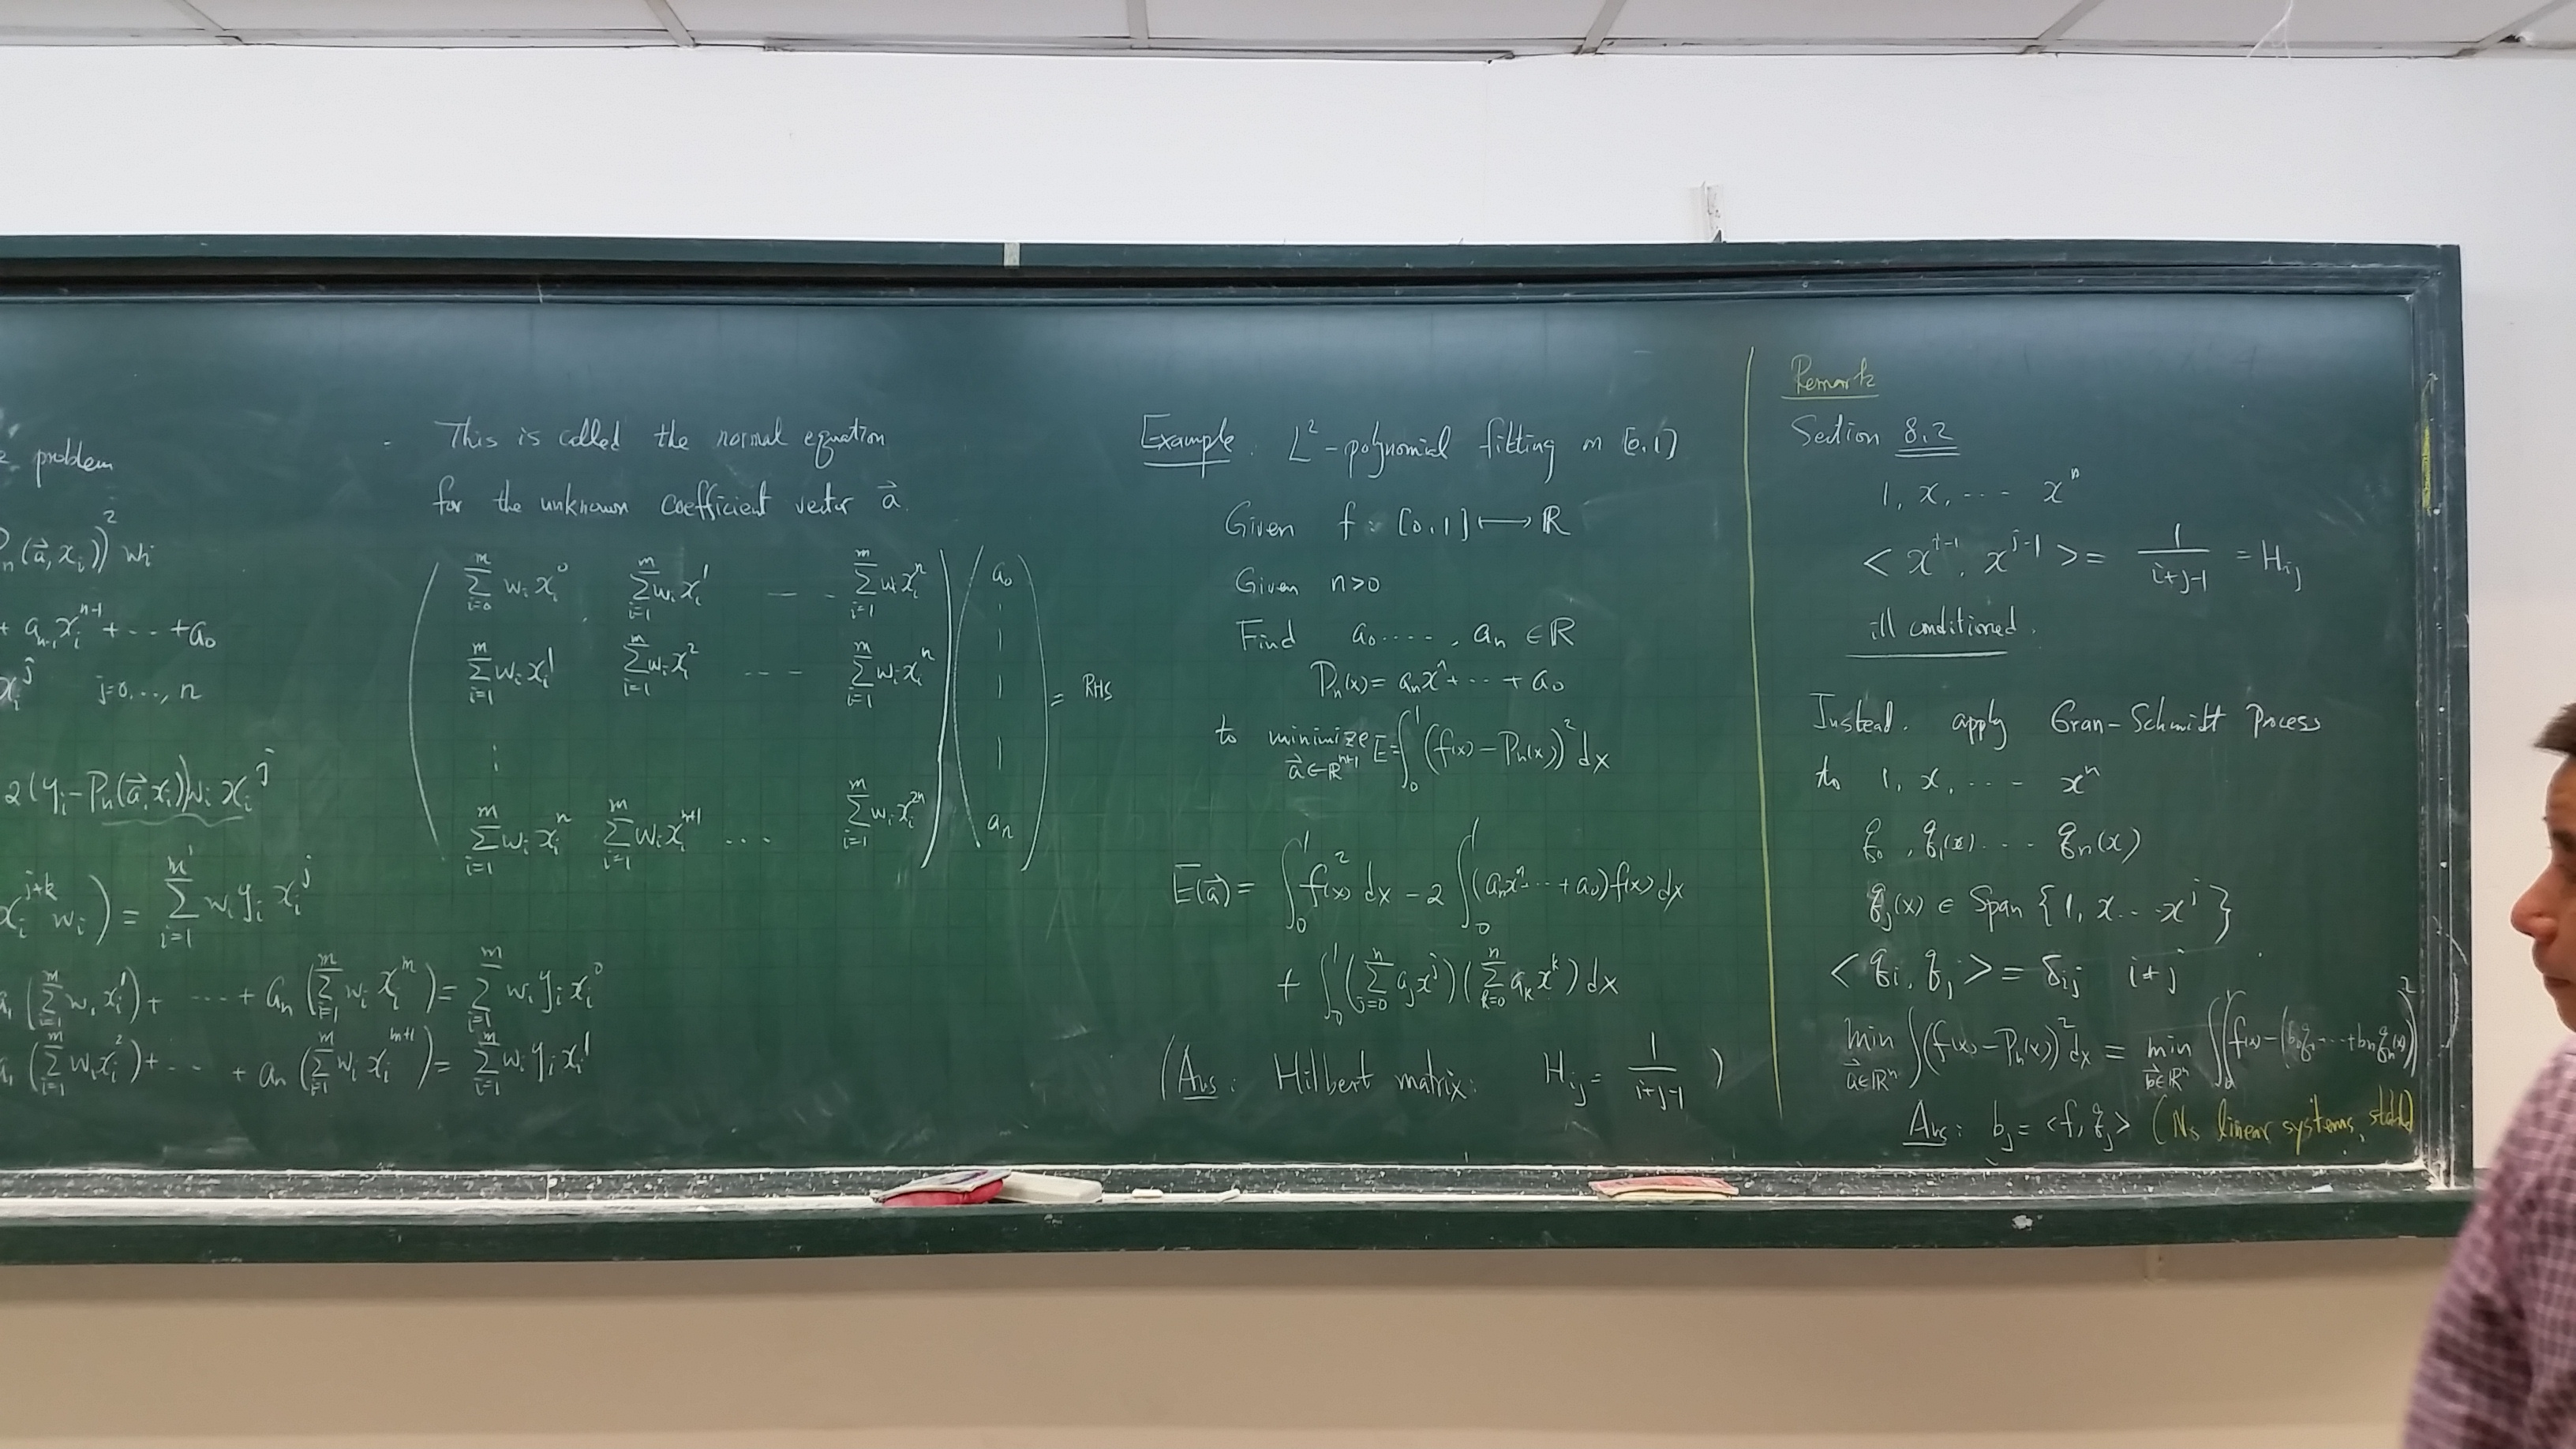 problem
Pₙ(a⃗, xᵢ))² wᵢ
+ aₙ₋₁xᵢⁿ⁻¹ + ... + a₀
xᵢʲ j=0, ..., n
2(yᵢ - Pₙ(a⃗, xᵢ))wᵢ xᵢʲ
xᵢʲ⁺ᵏ wᵢ) = ∑ᵢ₌₁ᵐ wᵢ yᵢ xᵢʲ
a₁ (∑ᵢ₌₁ᵐ wᵢ xᵢ¹) + ... + aₙ (∑ᵢ₌₁ᵐ wᵢ xᵢᵐ) = ∑ᵢ₌₁ᵐ wᵢ yᵢ xᵢ⁰
a₁ (∑ᵢ₌₁ᵐ wᵢ xᵢ²) + ... + aₙ (∑ᵢ₌₁ᵐ wᵢ xᵢᵐ⁺¹) = ∑ᵢ₌₁ᵐ wᵢ yᵢ xᵢ¹
- This is called the normal equation
for the unknown coefficient vector a⃗.
∑ᵢ₌₀ᵐ wᵢ xᵢ⁰ ∑ᵢ₌₁ᵐ wᵢ xᵢ¹ -- - ∑ᵢ₌₁ᵐ wᵢ xᵢⁿ a₀
∑ᵢ₌₁ᵐ wᵢ xᵢ¹ ∑ᵢ₌₁ᵐ wᵢ xᵢ² --- ∑ᵢ₌₁ᵐ wᵢ xᵢⁿ = RHS
⋮
∑ᵢ₌₁ᵐ wᵢ xᵢⁿ ∑ᵢ₌₁ᵐ wᵢ xᵢⁿ⁺¹ ... ∑ᵢ₌₁ᵐ wᵢ xᵢ²ⁿ aₙ
Example. L²-polynomial fitting on [0,1]
Given f: [0,1] ⟼ ℝ
Given n>0
Find a₀ ...., aₙ ∈ ℝ
Pₙ(x) = aₙxⁿ + ... + a₀
to minimize E = ∫₀¹ (f(x) - Pₙ(x))² dx
a⃗ ∈ ℝⁿ⁺¹
E(a⃗) = ∫₀¹ f(x)² dx - 2 ∫₀¹ (aₙxⁿ ... + a₀) f(x) dx
+ ∫₀¹ (∑ⱼ₌₀ⁿ aⱼxʲ) (∑ₖ₌₀ⁿ aₖxᵏ) dx
(Ans: Hilbert matrix: Hᵢⱼ = 1/(i+j-1) )
Remark
Section 8.2
1, x, ... xⁿ
< xⁱ⁻¹, xʲ⁻¹ > = 1/(i+j-1) = Hᵢⱼ
ill conditioned.
Instead, apply Gran-Schmidt Process
to 1, x, ... xⁿ
q₀, q₁(x) ... qₙ(x)
qⱼ(x) ∈ Span {1, x ... xʲ}
< qᵢ, qⱼ > = δᵢⱼ i≠j
min ∫ (f(x) - Pₙ(x))² dx = min ∫₀¹ (f(x) - (b₀q₀ ... + bₙqₙ(x)))²
a⃗∈ℝⁿ b⃗∈ℝⁿ
Ans: bⱼ = <f, qⱼ> (No linear systems,